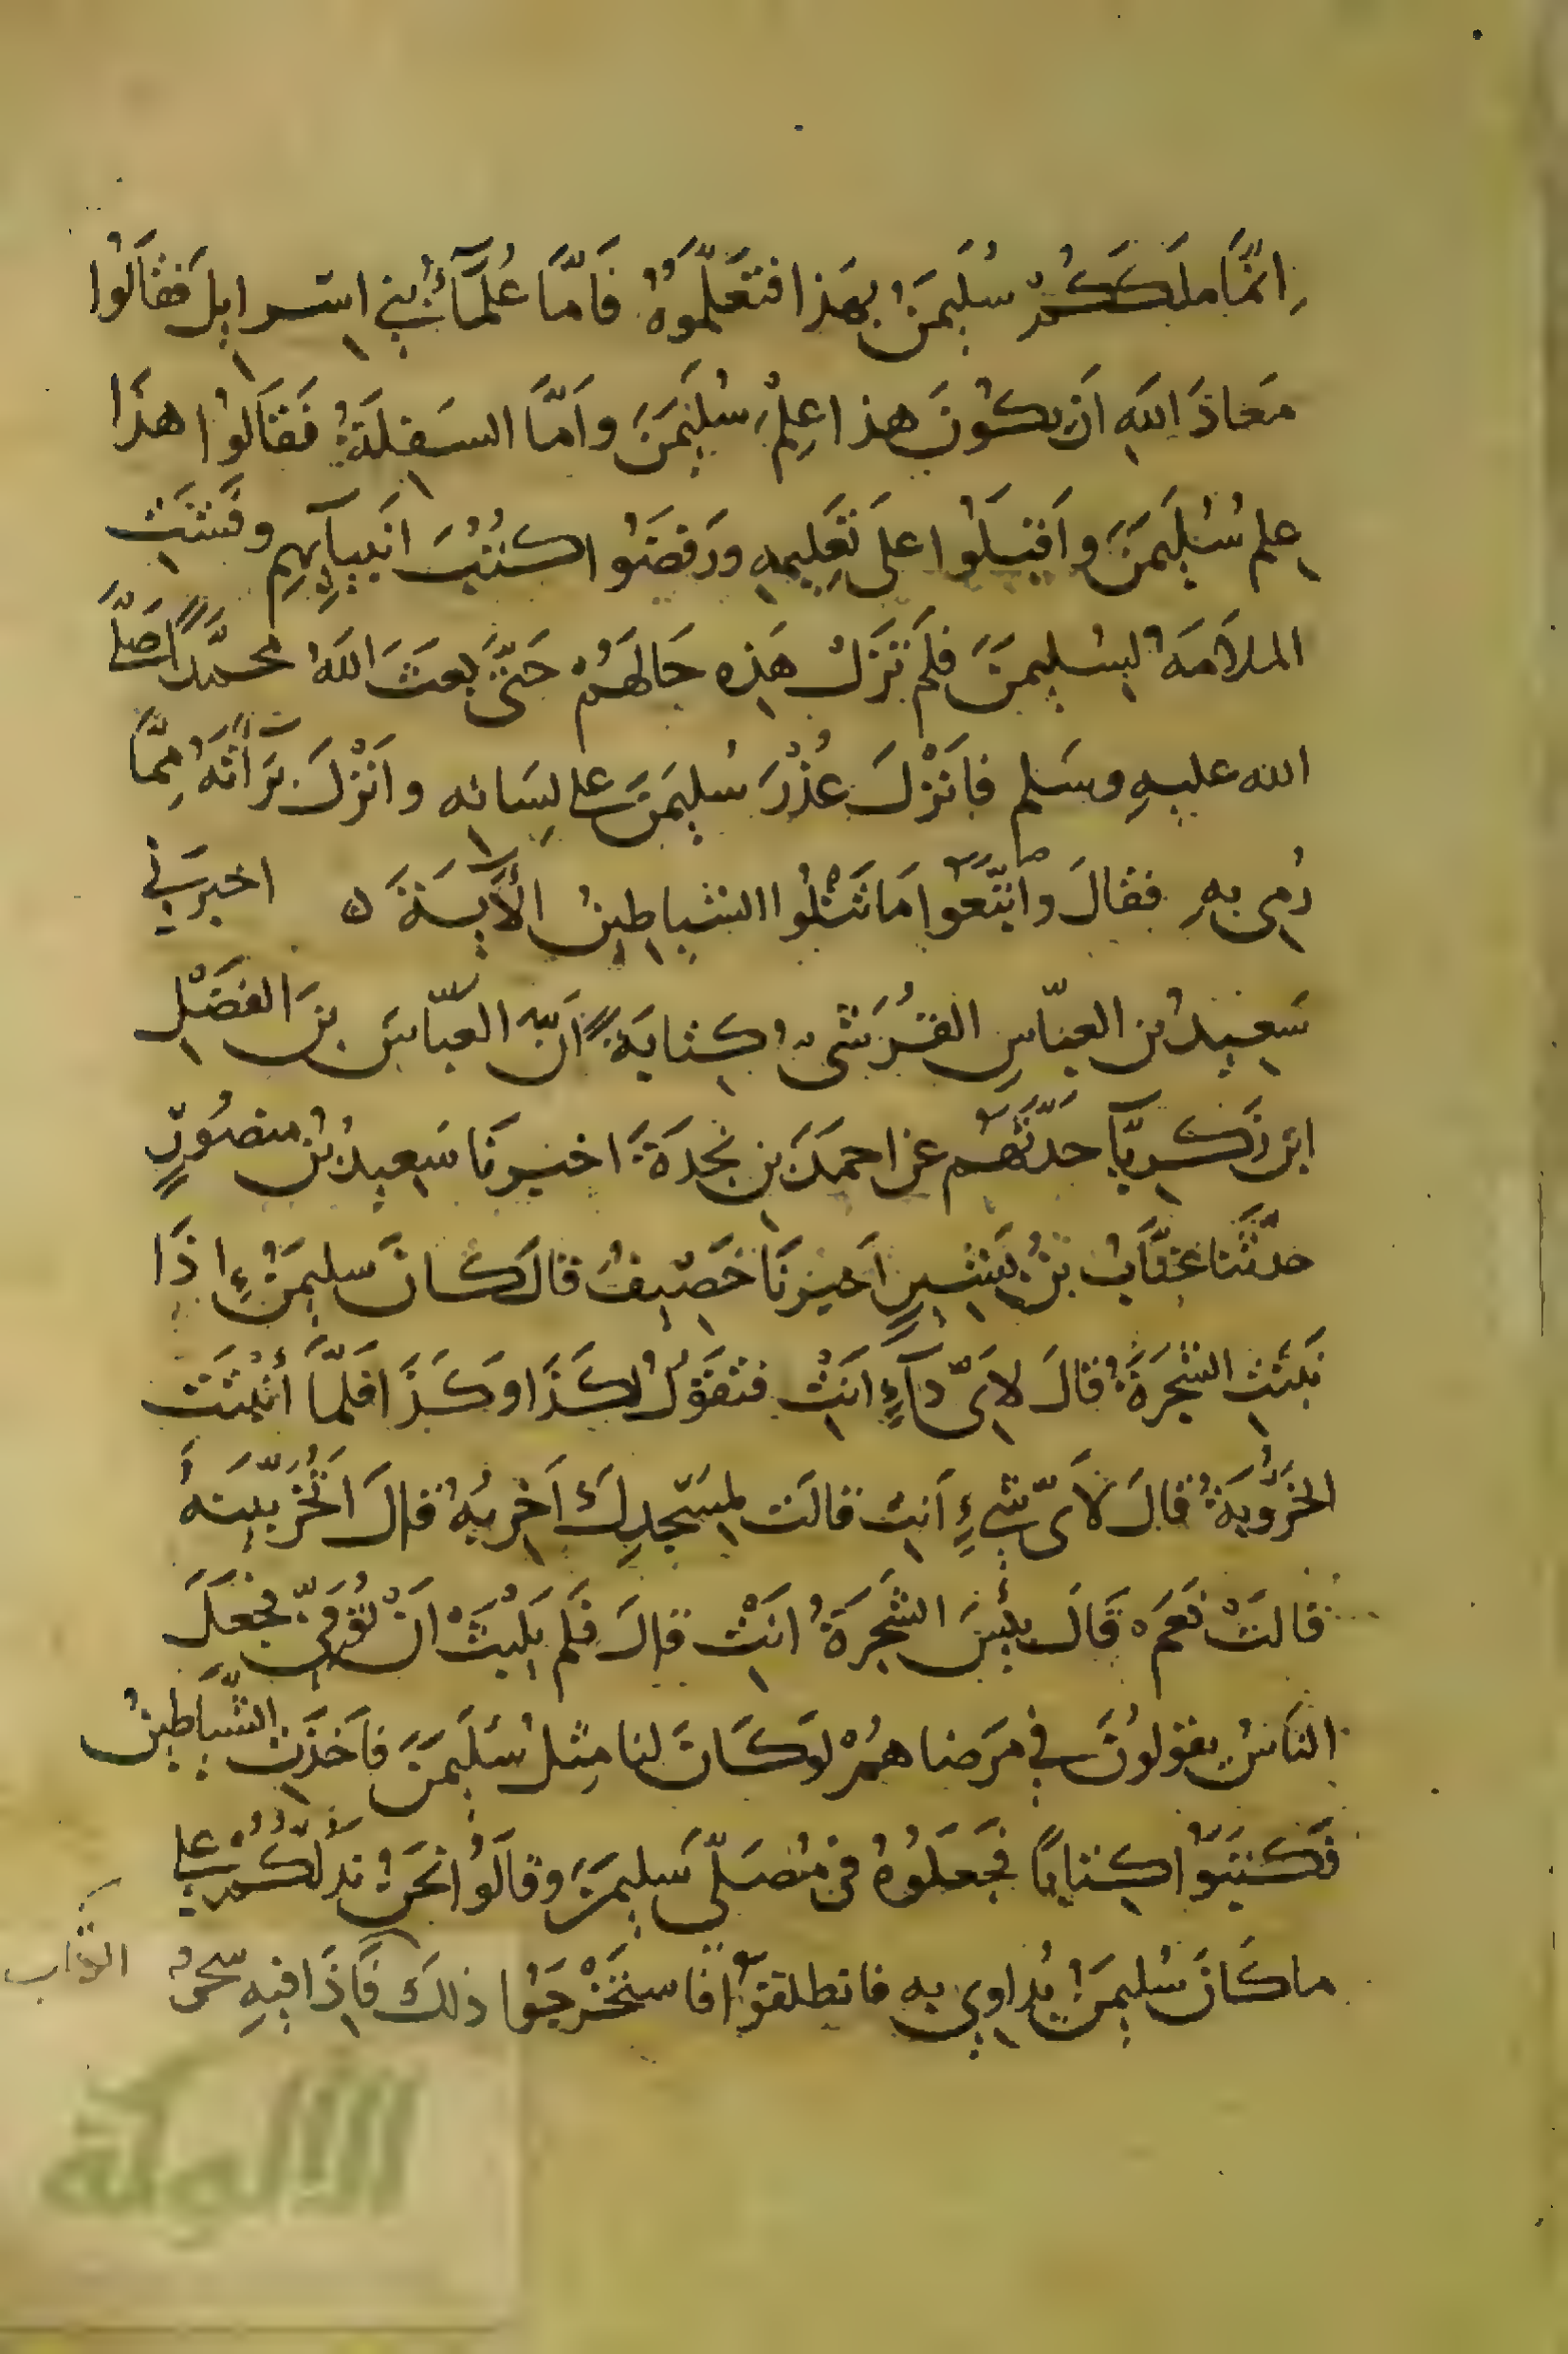 اِنَّمَا ملَكَكُمْ سُلَيمَنُ بِهَذا فَتَعَلَّمُوهُ فَاَمَّا عُلَمَآءُ بني اِسرايلَ فَقَالُوا
مَعَاذَ اللهِ اَن يكُونَ هذا عِلمُ سُلَيْمَنَ واَمَّا السَفِلَةُ فَقَالُوا هذَا
عِلم سُلَيمَنَ واَقبَلُوا على تَعْلِيمِهِ ورَفَضَوُا كُتُبَ انَبِيآيِهِم وفَشَتِ
الملاَمَةُ لِسُليمنَ فلَم تَزَلْ هَذِه حَالَهُمْ حَتَّى بَعثَ اللهُ محمَّداً صَلَّى
الله عليهِ وسَلم فاَنْزلَ عُذْرَ سُليمَنَ على لِسَانه وانْزلَ بَرَاَتَهُ مِمَّا
رُمِى بِهِ فقالَ واتَّبَعُوا مَا تَتْلُوا الشيَاطِينُ الأَيَةَ ه اخبرَني
سَعِيدُ بن العبّاسِ القُرَشىُّ كِتَابَةً اَنَّ العبّاسَ بنَ الفَضْلِ
ابن زَكَريَّآ حدّثَهُم عن احمدَ بنِ نجدَةَ اخبرنَا سَعِيدُ بْنُ منصُورٍ
حدثَّنا عتَّابُ بْنُ بَشِيرٍ اَخبرنَا خُصَيفُ قالَ كانَ سليمَنُ اِذَا
نَبَتَتِ الشَجَرَةُ قالَ لاَىِّ دَآءٍ انَتِ فتَقَوُلُ لِكَذَا وَكَذَا فَلَمَّا نَبَتَت
الخَرُّوبَةُ قالَ لأَىِّ شىءٍ اَنتِ قالَت لمِسَجدِكَ اَخرِبُهُ قالَ اَتُخَرِّبِينَهُ
قالَتْ نَعَمْ ه قَالَ بِئسَ الشجَرَةُ انَتِ قالَ فلَم يَلْبَثْ اَنْ تُوُفّىَ فجعَلَ
النَاسُ يقولوُنَ في مَرضاهمُ لوَ كَانَ لنا مِثلُ سُلَيمَنَ فاَخَذَتِ الشَّيَاطِينُ
فكَتبَوُا كِتاباً فَجَعَلُوُهُ فى مُصَلّى سُلَيمَنَ وقالَوُا نحَنُ ندُلُّكُمْ على
ما كَانَ سُليمَنُ يُداوِي به فانطلقَوُا فَاستَخْرَجَوُا ذلكَ فَاِذَا فيهِ سِحرٌ
الكتاب
الألوكة